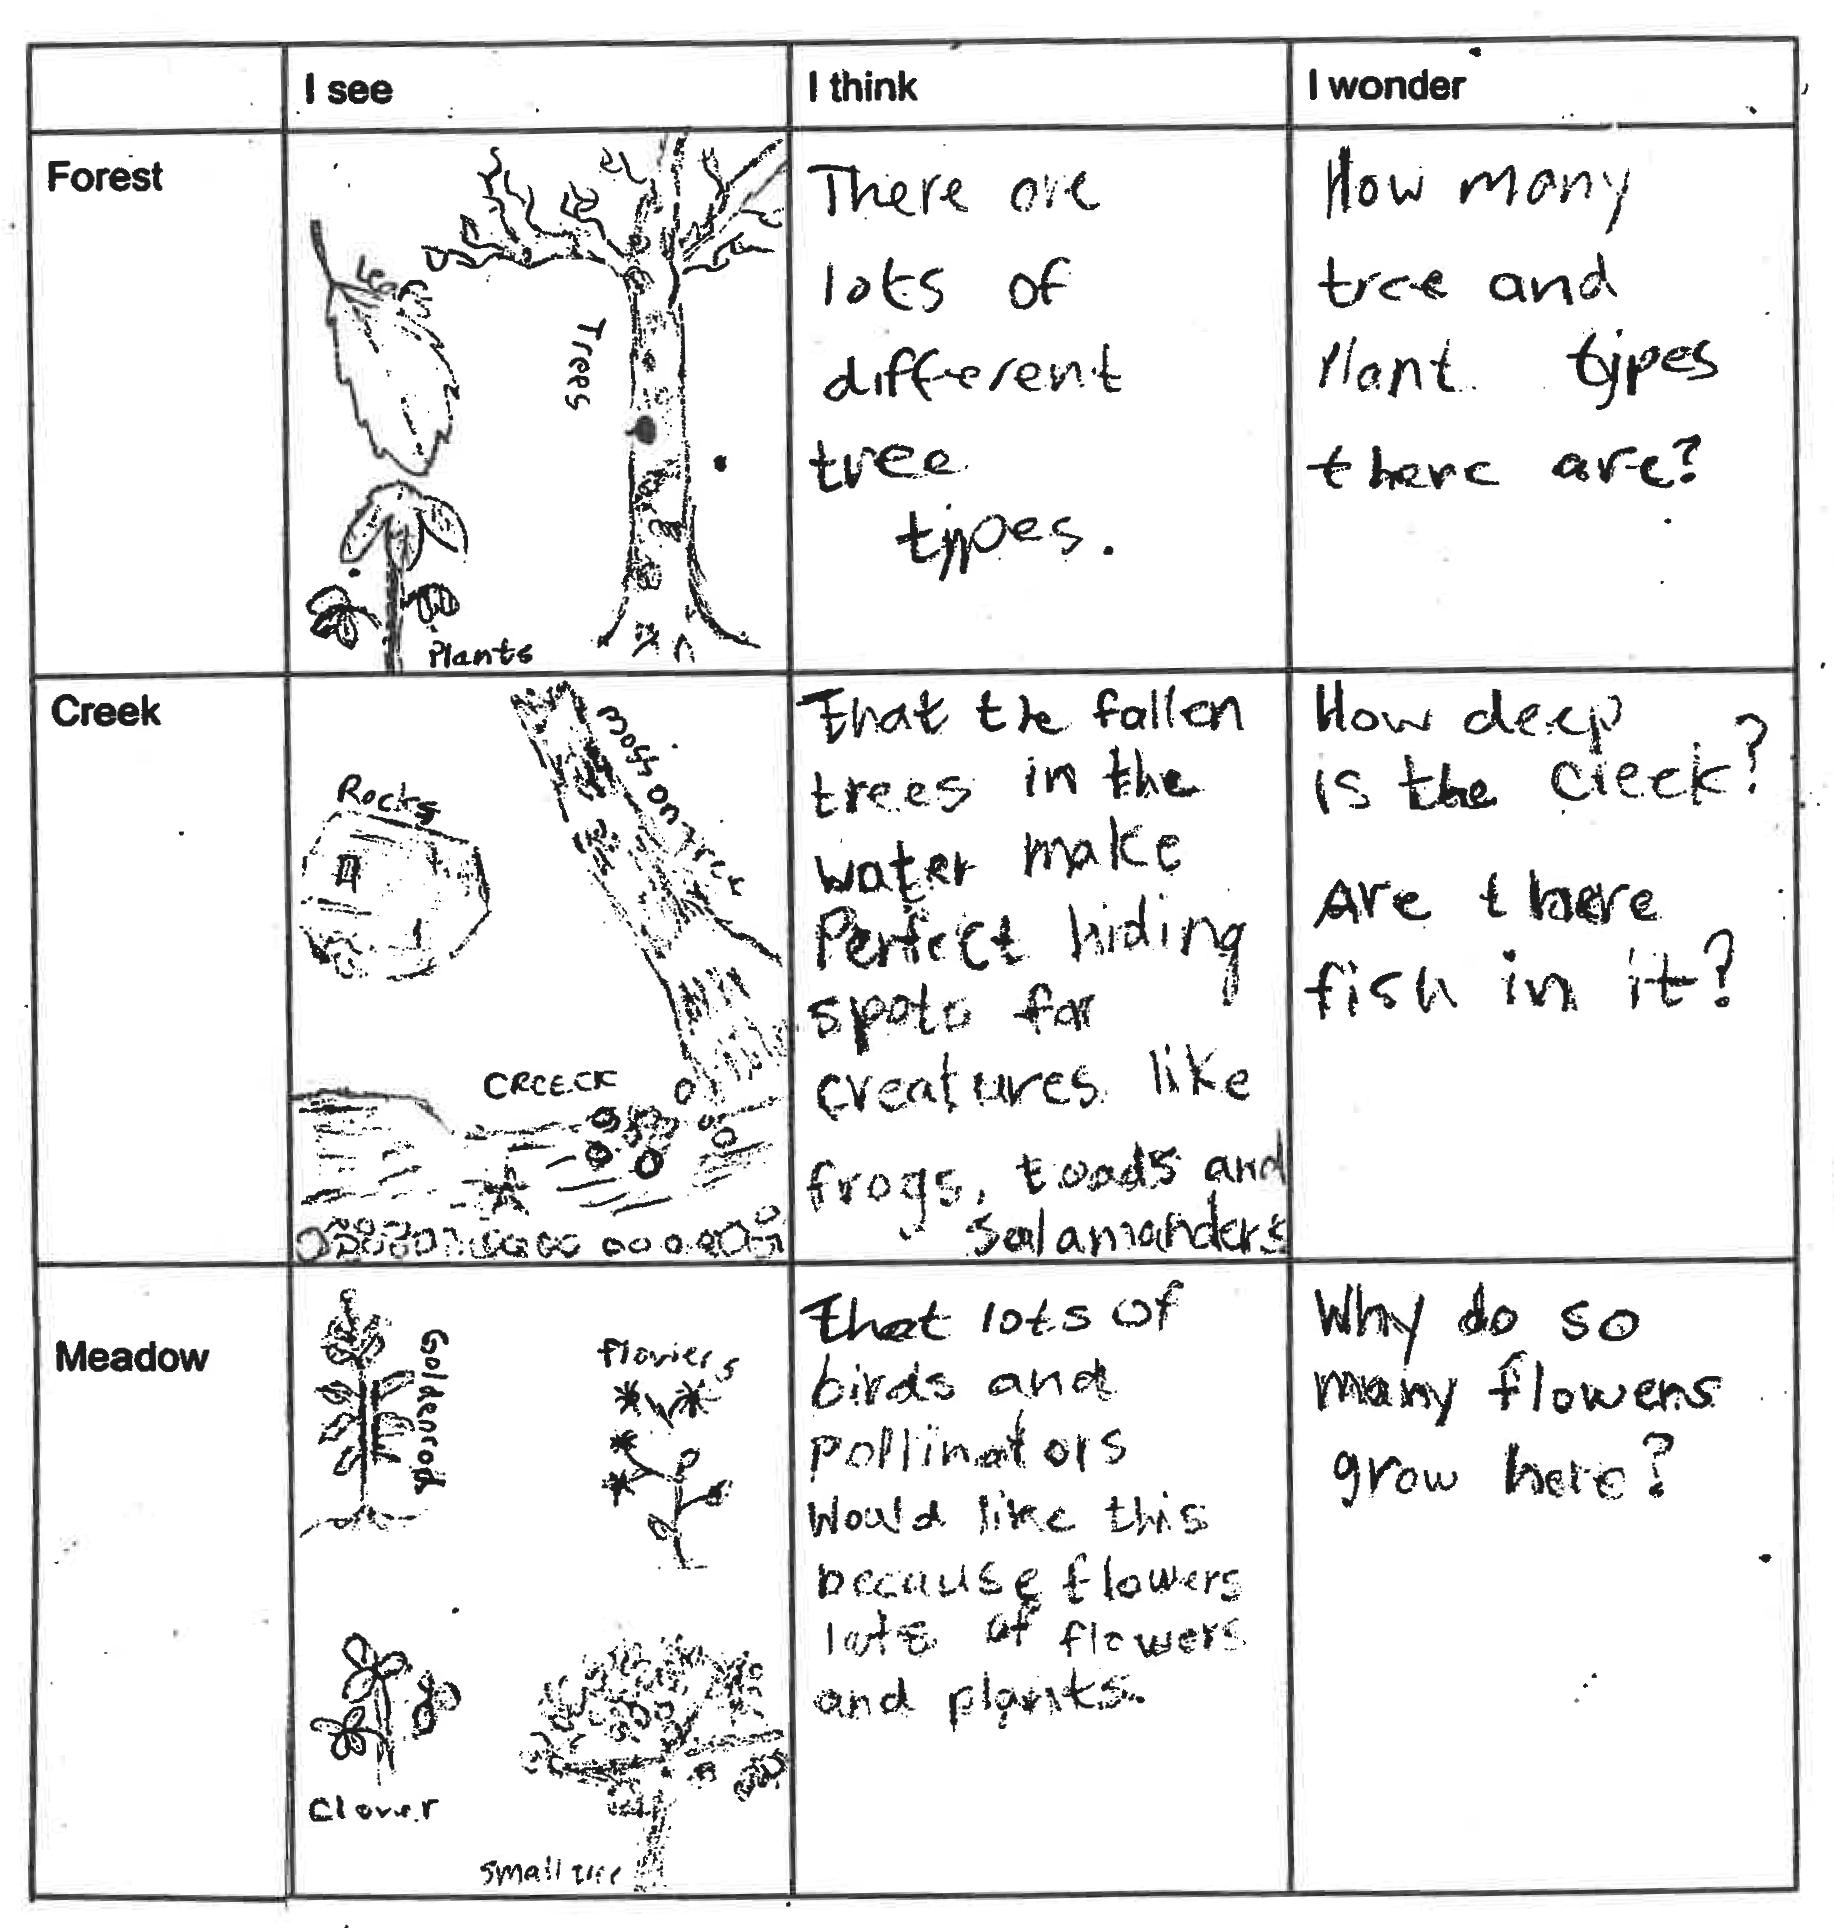 I see
I think
I wonder
Forest
Trees
Plants
There are
lots of
different
tree
types.
How many
tree and
Plant types
there are?
Creek
Rocks
Moss on Tree
CREECK
That the fallen
trees in the
water make
Perfect hiding
spots for
creatures like
frogs, toads and
Salamanders
How deep
is the creek?
Are there
fish in it?
Meadow
Goldenrod
flowers
Clover
Small tree
That lots of
birds and
pollinators
Would like this
because flowers
lots of flowers
and plants.
Why do so
many flowers
grow here?